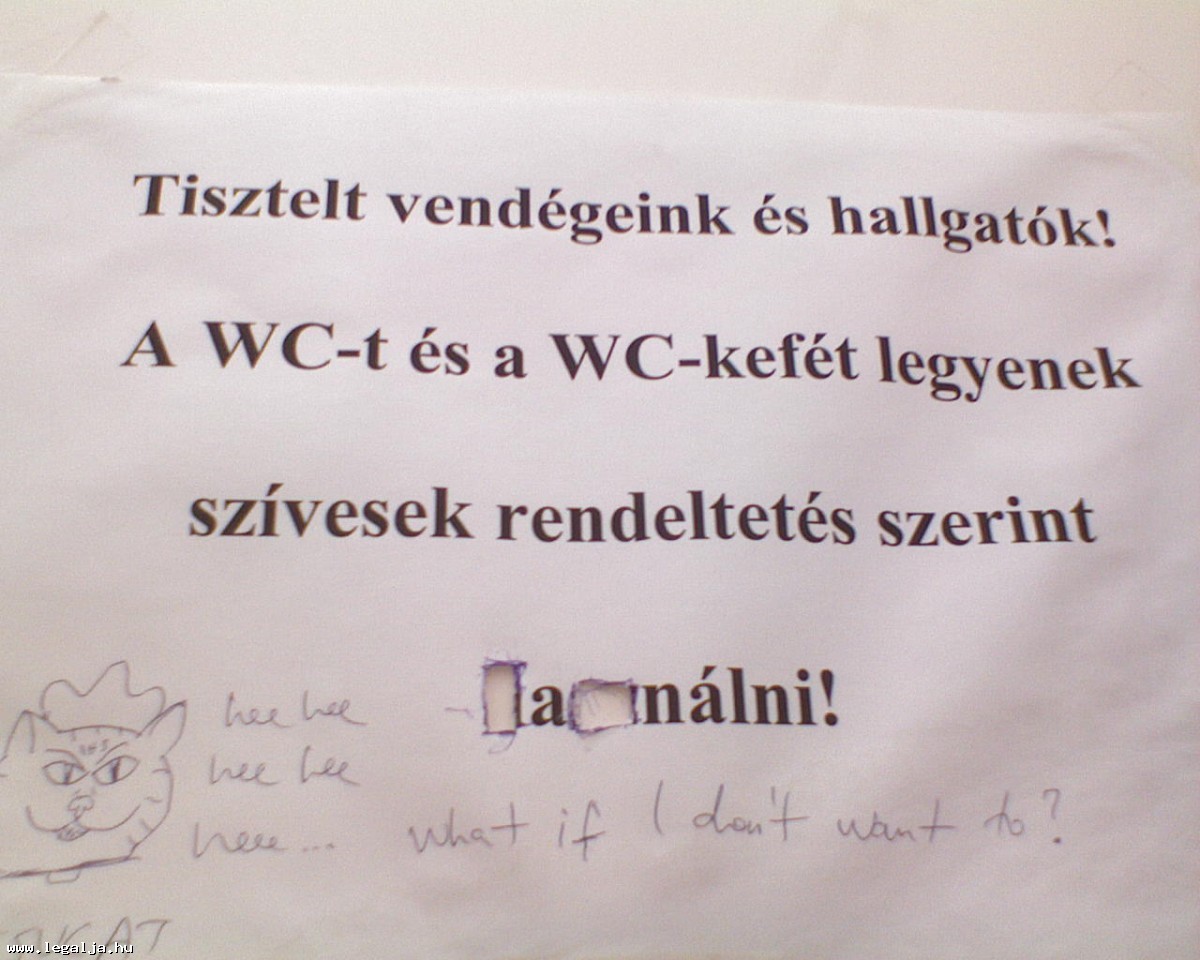 Tisztelt vendégeink és hallgatók!
A WC-t és a WC-kefét legyenek
szívesek rendeltetés szerint
a nálni!
hee hee
hee hee
heee...
what if I don't want to?
www.legalja.hu